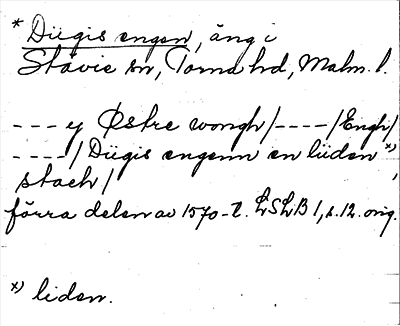 * Diigis engen, äng i
Stävie sn, Torna hd, Malm. l.
--- y Østre wongh/----/Engh/
----/ Diigis engenn en liiden *)
stach/
förra delen av 1570-t. LSLB 1, s. 12. orig.
*) liden.